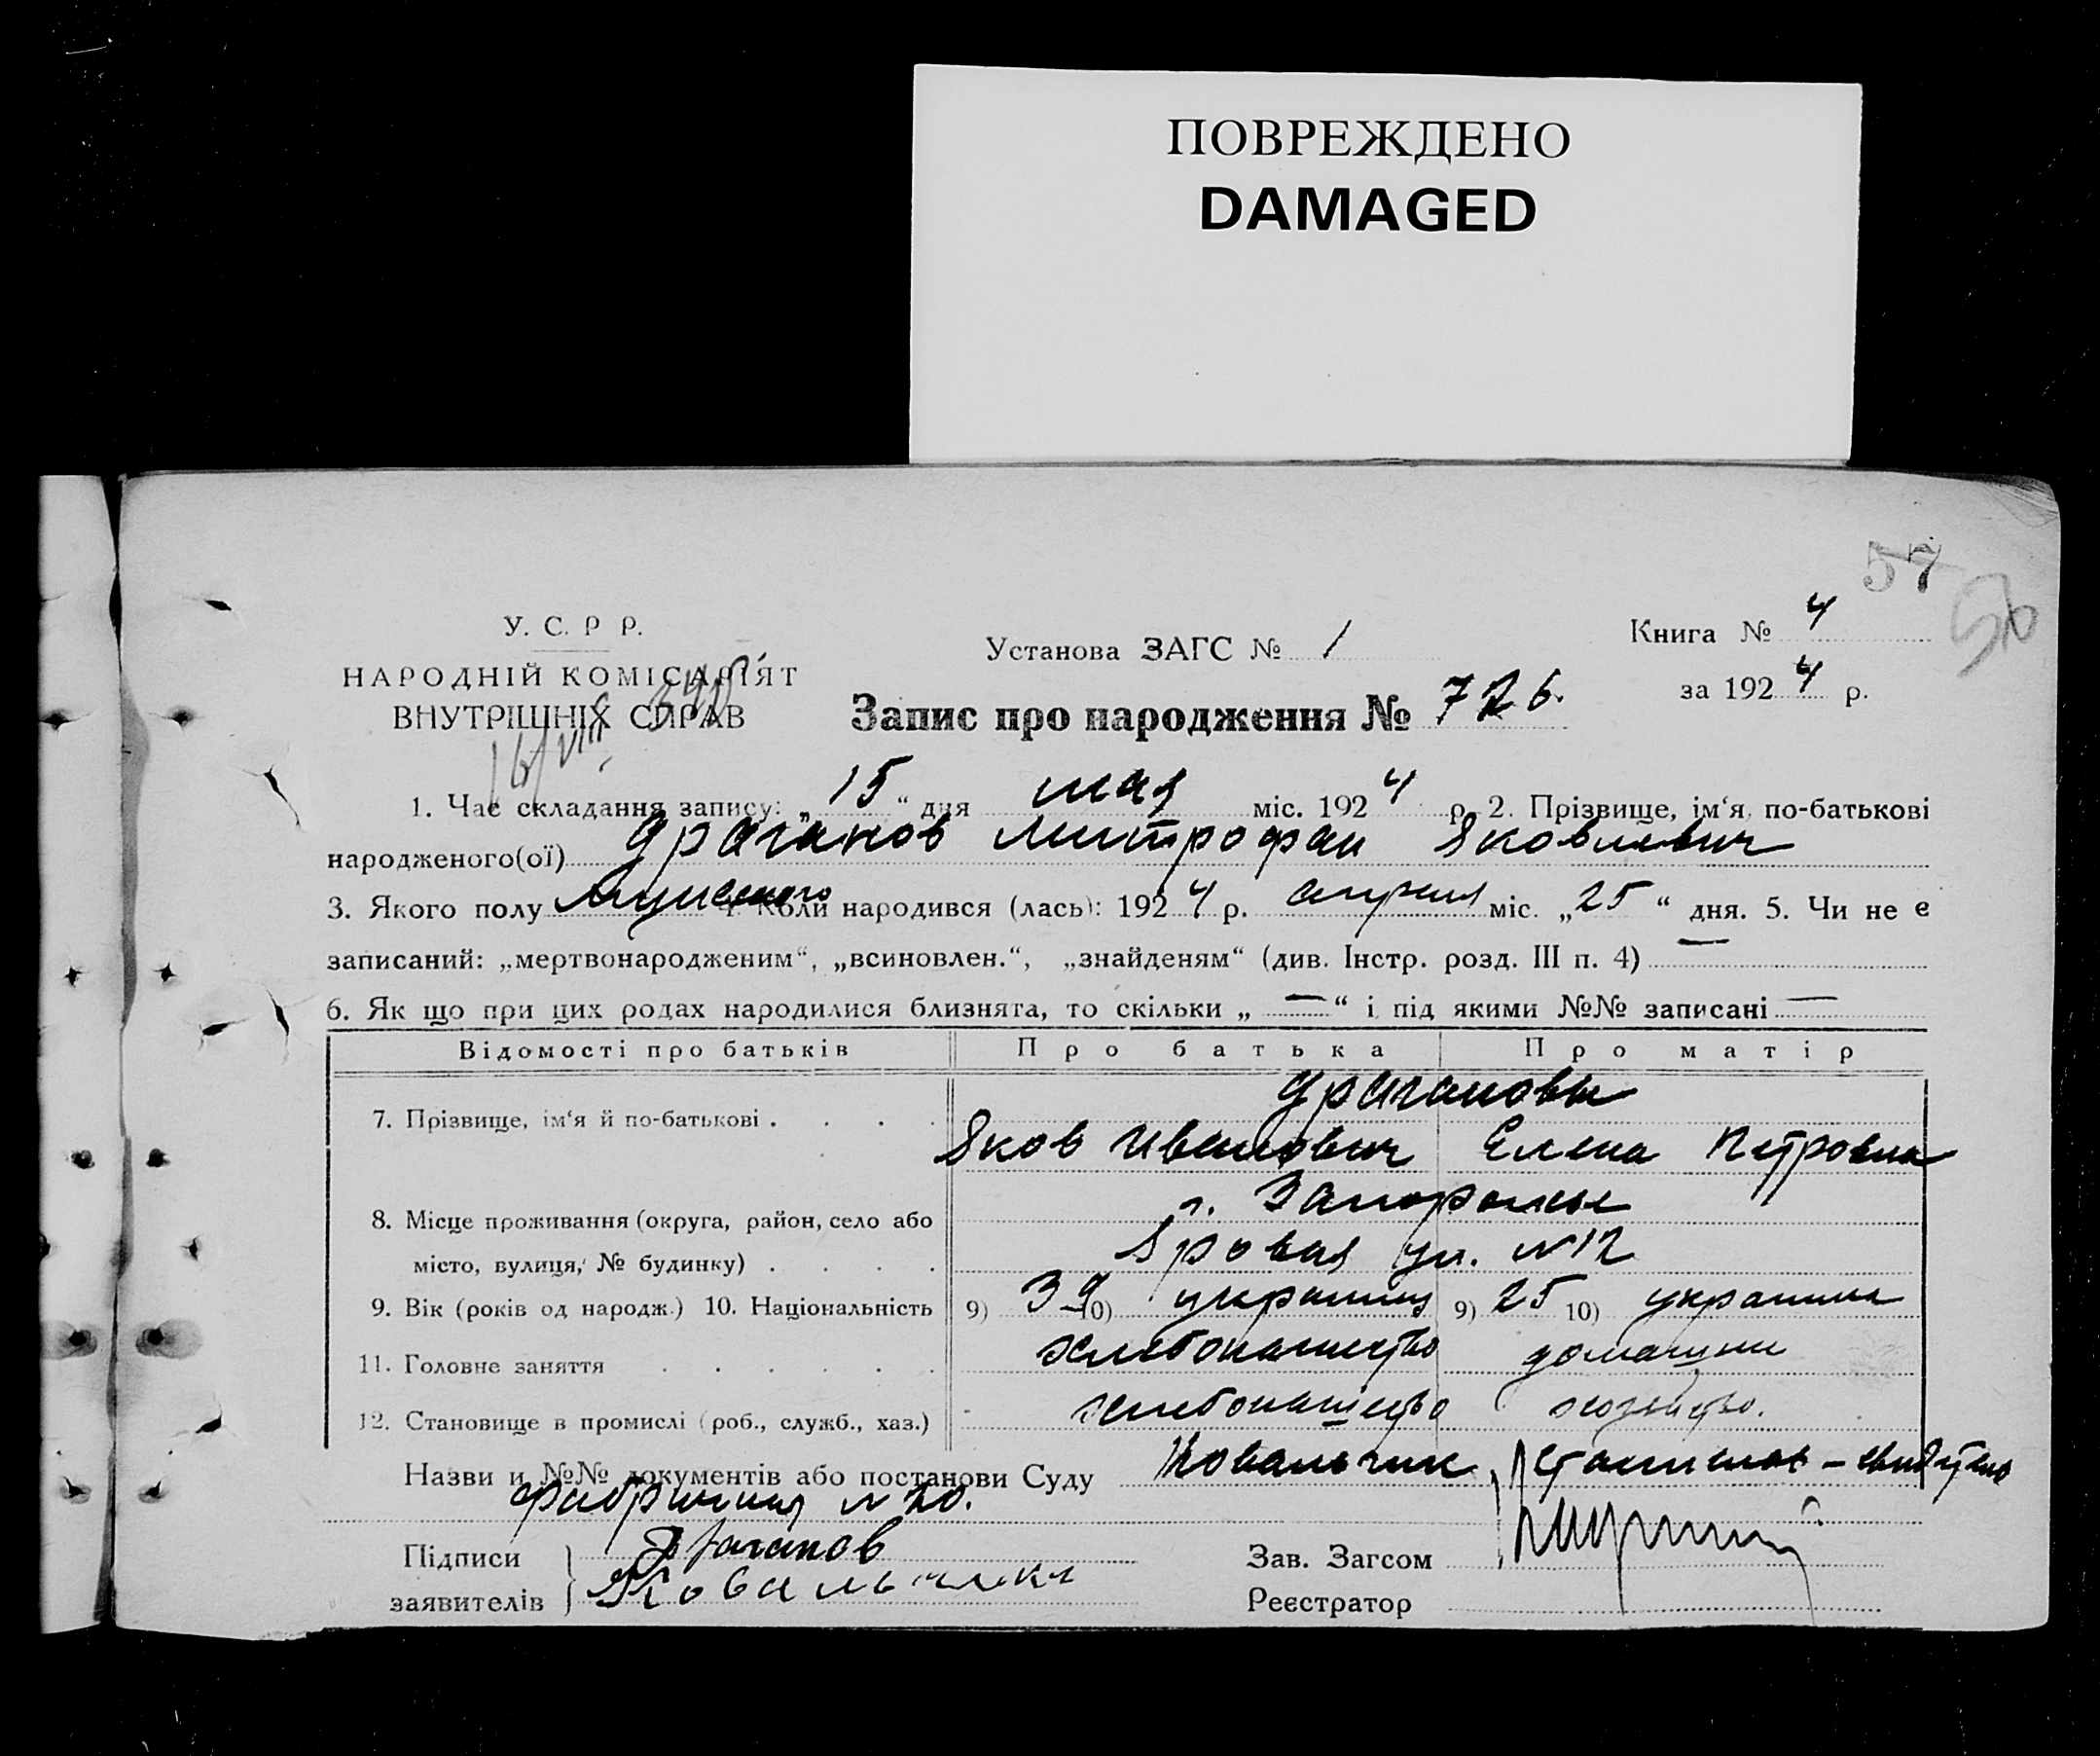 ПОВРЕЖДЕНО
DAMAGED
57
У. С. Р Р.
НАРОДНІЙ КОМІСАРІЯТ
ВНУТРІШНІХ СПРАВ
Установа ЗАГС № 1
Книга № 4
за 1924 р.
Запис про народження № 726.
1. Час складання запису: „15“ дня мая міс. 1924 р. 2. Прізвище, ім‘я, по-батькові
народженого(ої) Драганов Митрофан Яковлевич
3. Якого полу мужского 4. Коли народився (лась): 1924 р. апреля міс. „25“ дня. 5. Чи не є
записаний: „мертвонародженим“, „всиновлен.“, „знайденям“ (див. Інстр. розд. III п. 4) —
6. Як що при цих родах народилися близнята, то скільки „—“ і під якими №№ записані —
Відомості про батьків Про батька Про матір
Драгановы
7. Прізвище, ім‘я й по-батькові . . . .
Яков Иванович Елена Петровна
г. Запорожье
8. Місце проживання (округа, район, село або
місто, вулиця, № будинку) . . . . Яровая ул. №12
9. Вік (років од народж.) 10. Національність 9) 39 10) украинц 9) 25 10) украинка
11. Головне заняття . . . . . . хлебопашество домашнее
12. Становище в промислі (роб., служб., хаз.) хлебопашество хозяйство.
Назви и №№ документів або постанови Суду Ковальчик,
Фабричная № 20.
Підписи заявителів } Драганов
Ковальчик
Зав. Загсом
Реєстратор